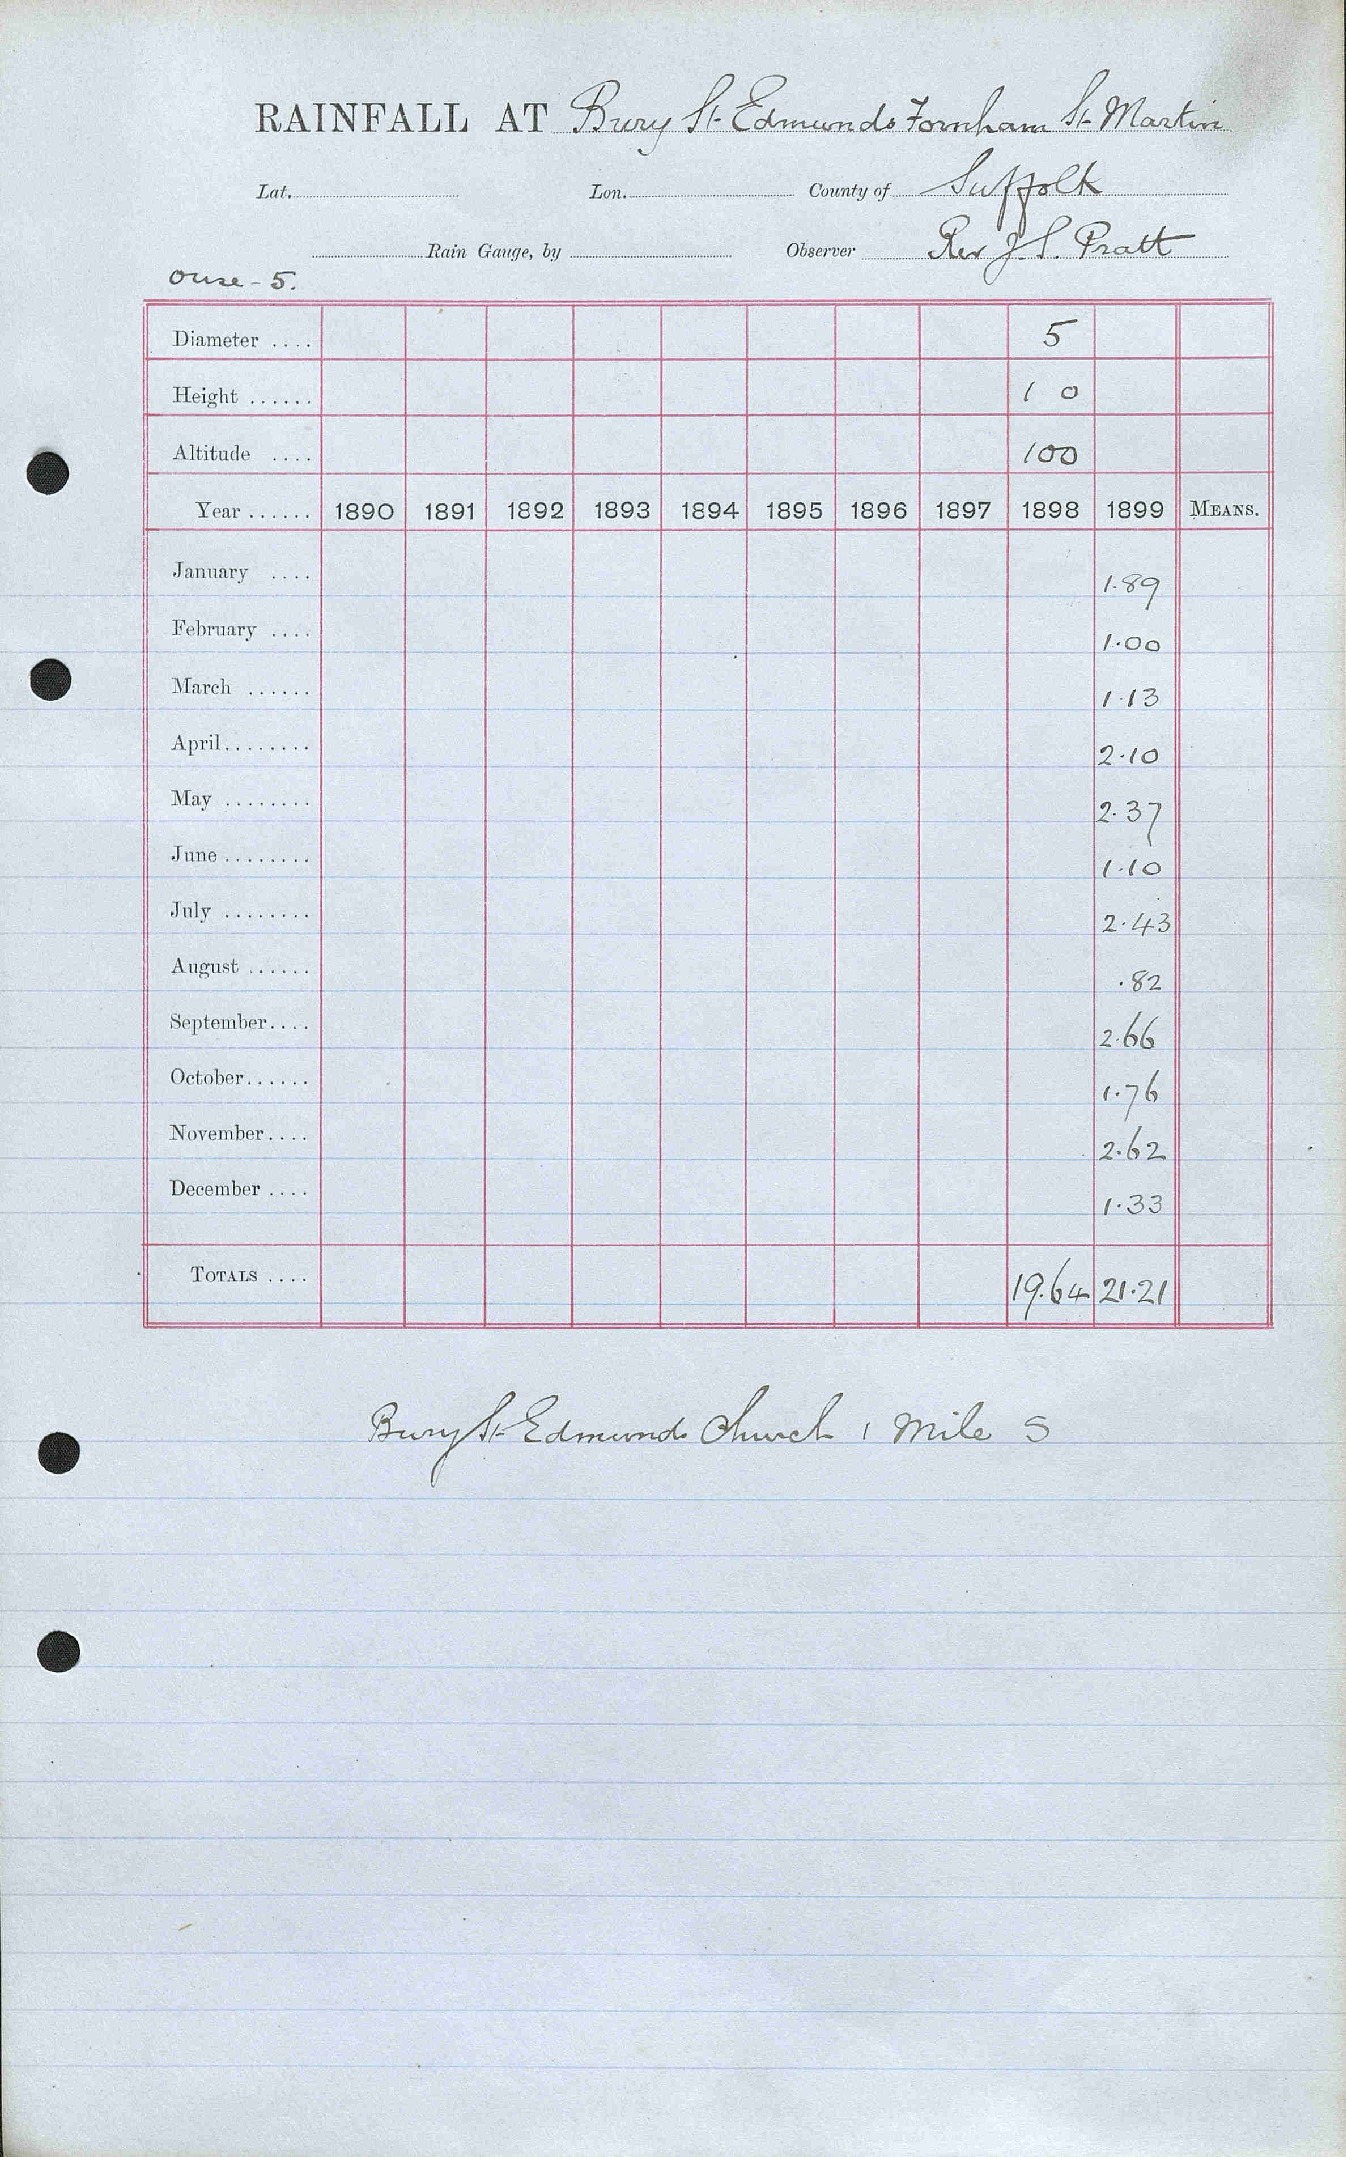 RAINFALL AT Bury St Edmunds Fornham St Martin
Lat. Lon. County of Suffolk
Rain Gauge, by Observer Rev J. S. Pratt
Ouse - 5.
Diameter .... 5
Height ...... 1 0
Altitude .... 100
Year ...... 1890 1891 1892 1893 1894 1895 1896 1897 1898 1899 MEANS.
January .... 1.89
February .... 1.00
March ...... 1.13
April........ 2.10
May ........ 2.37
June ........ 1.10
July ........ 2.43
August ...... .82
September.... 2.66
October...... 1.76
November.... 2.62
December .... 1.33
TOTALS .... 19.64 21.21
Bury St Edmunds Church 1 mile S